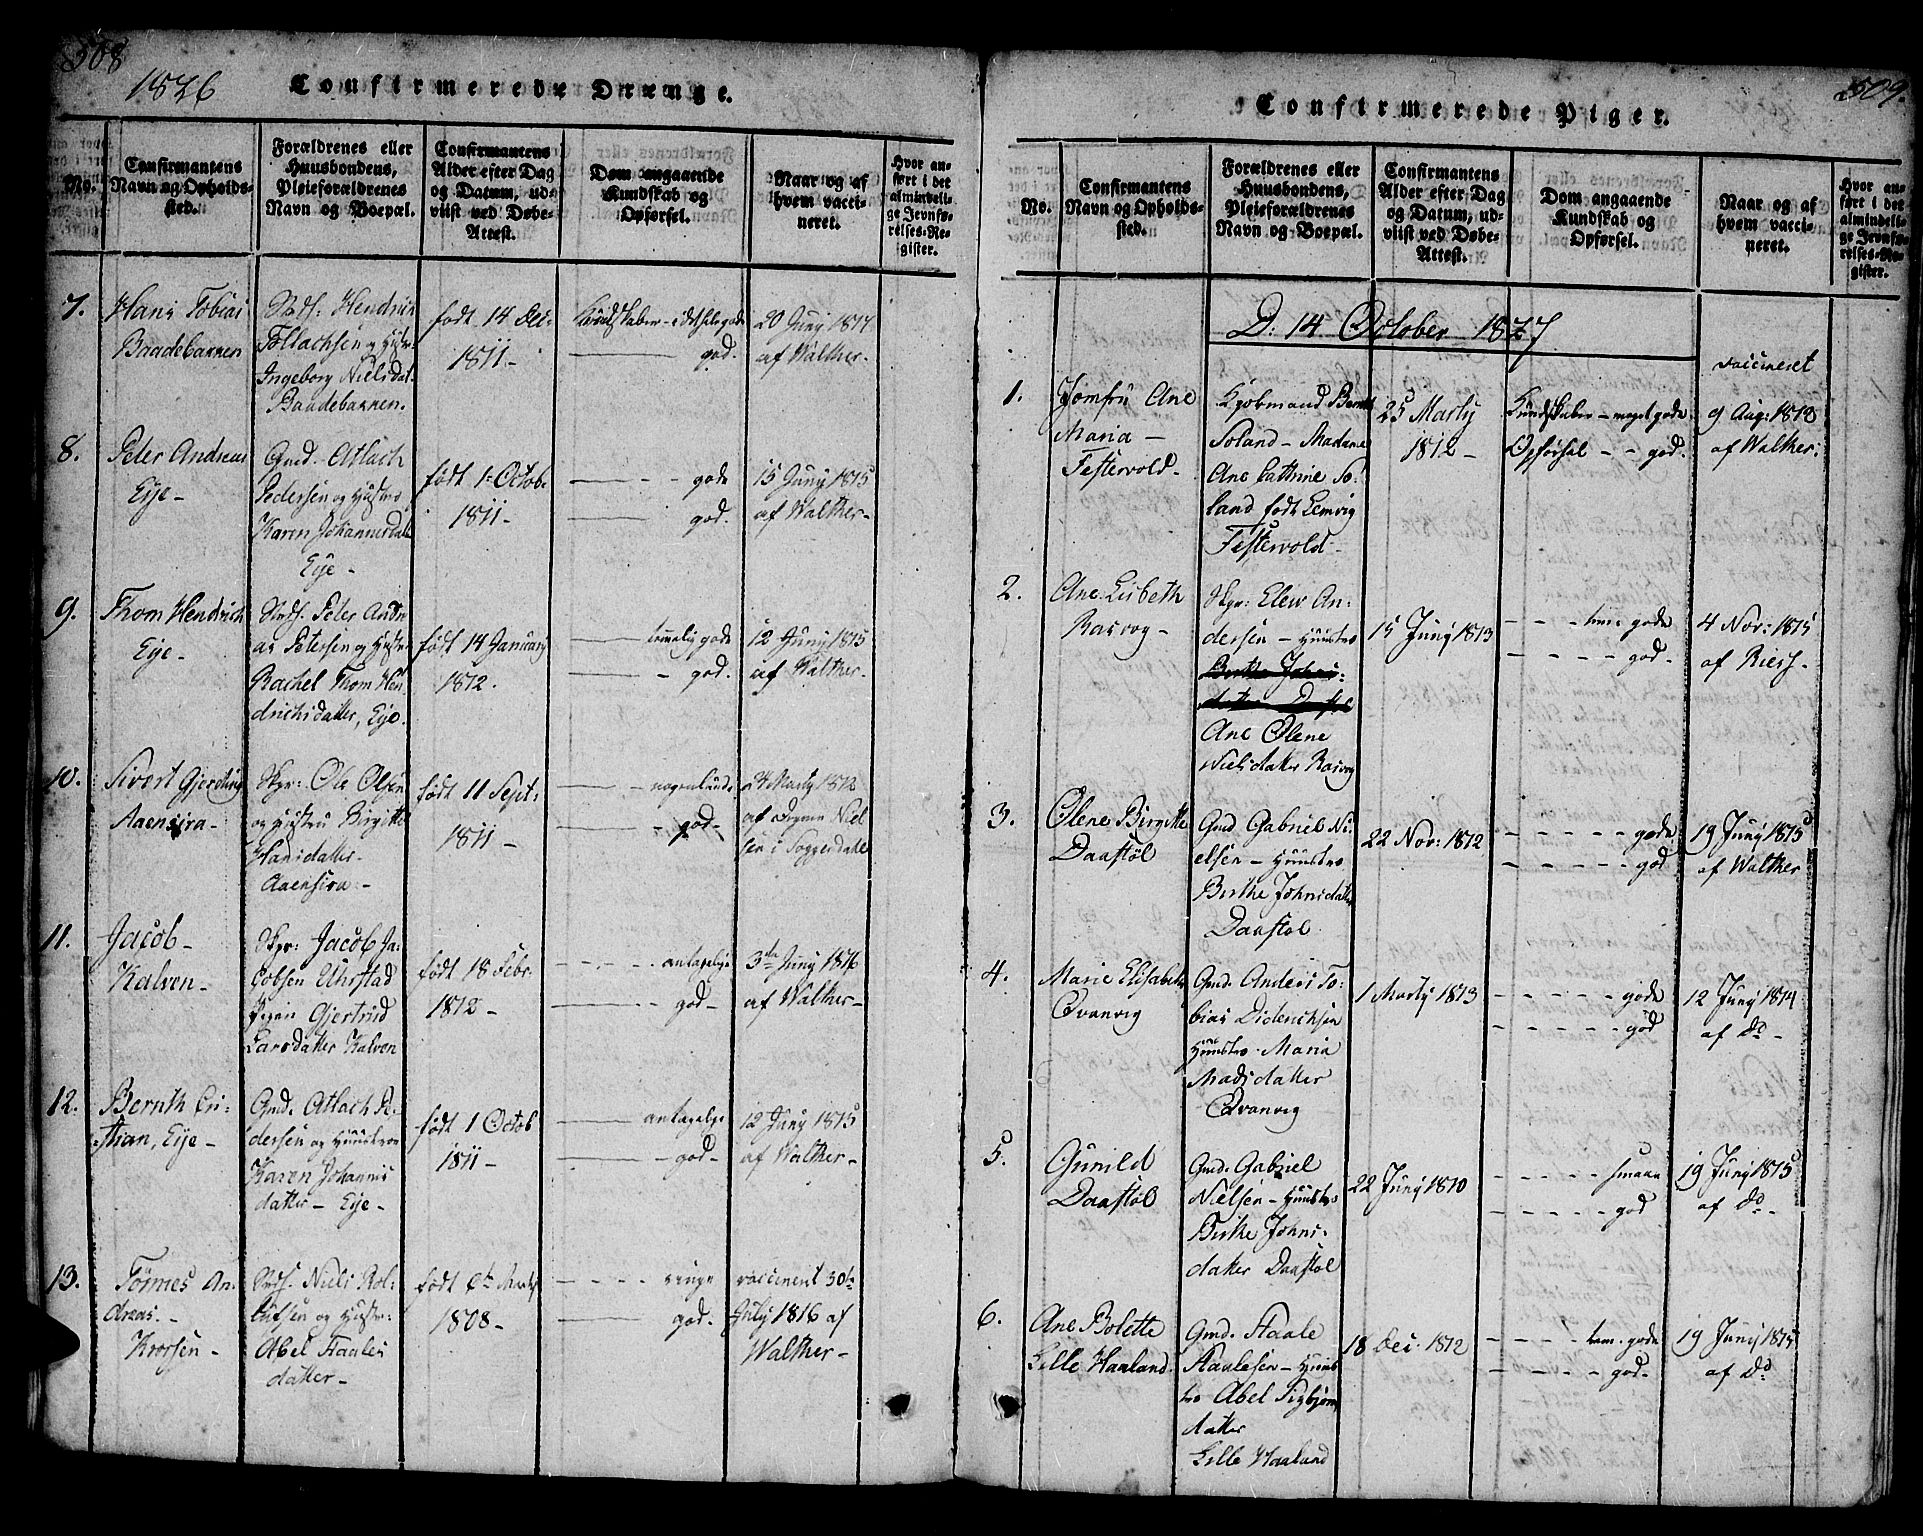 508
1826 Confirmerede Drænge.
No.
Confirmantens
Navn og Opholds-
sted.
Forældrenes eller
Huusbondens,
Pleieforældrenes
Navn og Boepæl.
Confirmantens
Alder efter Dag
og Datum, ud-
viist ved Døbe-
Attest.
Dom angaaende
Kundskab og
Opførsel.
Naar og af
hvem vacci-
neret.
Hvor an-
ført i det
almindeli-
ge Jevnfø-
relses-Re-
gister.
7.
Hans Tobias
Baadebarnen
Hendrik
Follachsen og Hustr.
Ingeborg Nielsdat.
Baadebarnen.
født 14 Dec:
1811 -
god.
20 Juny 1817
af Walther-
8.
Peter Andreas
Eije -
Gmd. Atlach
Pedersen og Hustro
Karen Johannesdatt
Eije -
født 1. Octobr
1811 -
- - gode
god.
15 Juny 1815
af Walther-
9.
Thom Hendrich
Eije -
Peter Andre
as Petersen og Hustr.
Rachel Thom Hen
drichsdatter, Eije.
født 14 January
1812.
temelig gode
- god.
12 Juny 1815
af Walther-
10.
Sivert Gjerding
Aaensira -
Skpr: Ole Olsen
og Hustru Birgitte
Hansdatter -
Aaensira -
født 11 Sept:
1811 -
- nogenlunde
- god -
24 Marty 1812
af Niel
sen i Soggendale
11.
Jacob -
Kalven -
Skpr: Jacob Ja:
cobsen Uhrstad
Pigen Gjertrud
Larsdatter Kalven
født 18 Febr:
1812 -
- - - - antagelige
god -
3die Juny 1816
af Walther -
12.
Bernth Cri:
stian, Eije -
Gmd. Atlach Pe.
dersen og Huustroe
Karen Johannis
datter - Eije -
født 1 Octob
1811 -
antagelige
- god -
12 Juny 1815
af Walther -
13.
Tørnes An
dreas. -
Krorsen -
Niels Rol:
lufsen og Hustr:
Abel Staales
datter -
født
1808 -
- - - - ringe
god.
vaccineret 30te
July 1816 af
Walther -
509.
Confirmerede Piger.
No.
Confirmantens
Navn og Opholds-
sted.
Forældrenes eller
Huusbondens,
Pleieforældrenes
Navn og Boepæl.
Confirmantens
Alder efter Dag
og Datum, ud-
viist ved Døbe-
Attest.
Dom angaaende
Kundskab og
Opførsel.
Naar og af
hvem vacci-
neret.
Hvor an-
ført i det
almindeli-
ge Jevnfø-
relses-Re-
gister.
D. 14 October 1827
1.
Jomfru Ane
Maria -
Festervold -
Kjøbmand Bernt
Soland - Madame
Ane Cathrine So-
land født Lemvig
Festervold -
25 Marty
1812 -
Kundskaber - meget gode
Opførsel - - god.
vaccineret
9 Aug: 1813
af Walther.
2.
Ane Lisbeth
Rasvog -
Skpr: Elew An:
dersen - Huustro
Ane Olene
Nielsdatter Rasvog
15 Juny 1813
- - - tem: gode
- - - - - god.
4 Nov: 1815
af Riess.
3.
Olene Birgitte
Daastöl
Gmd Gabriel Ni:
elsen - Huustro
Birthe Johnsdatter
Daastøl.
22 Nov: 1812
- - - - - gode
- - - - - god
19 Juny 1815
af Walther
4.
Marie Elisabeth
Qvanvig
Gmd. Anders To:
bias Diderichsen
Huustro. Maria
Madsdatter
Qvanvig
1 Marty 1813
- - - - - gode
- - - - - god
12 Juny 1814
af Do -
5.
Gunild
Daastöl
Gmd. Gabriel
Nielsen - Huustro
Birthe Johns:
datter Daastøl
22 Juny 1810
- - - - - smaae
- - - - - god
19 Juny 1815
af Do -
6.
Ane Bolette
Lille Haaland.
Gmd. Staale
Staalesen - Huus
tro Abel Sigbjørns
datter
Lille Haaland
18 Dec. 1812
- - - - tem. gode
- - - - - god.
19 Juny 1815
af Do